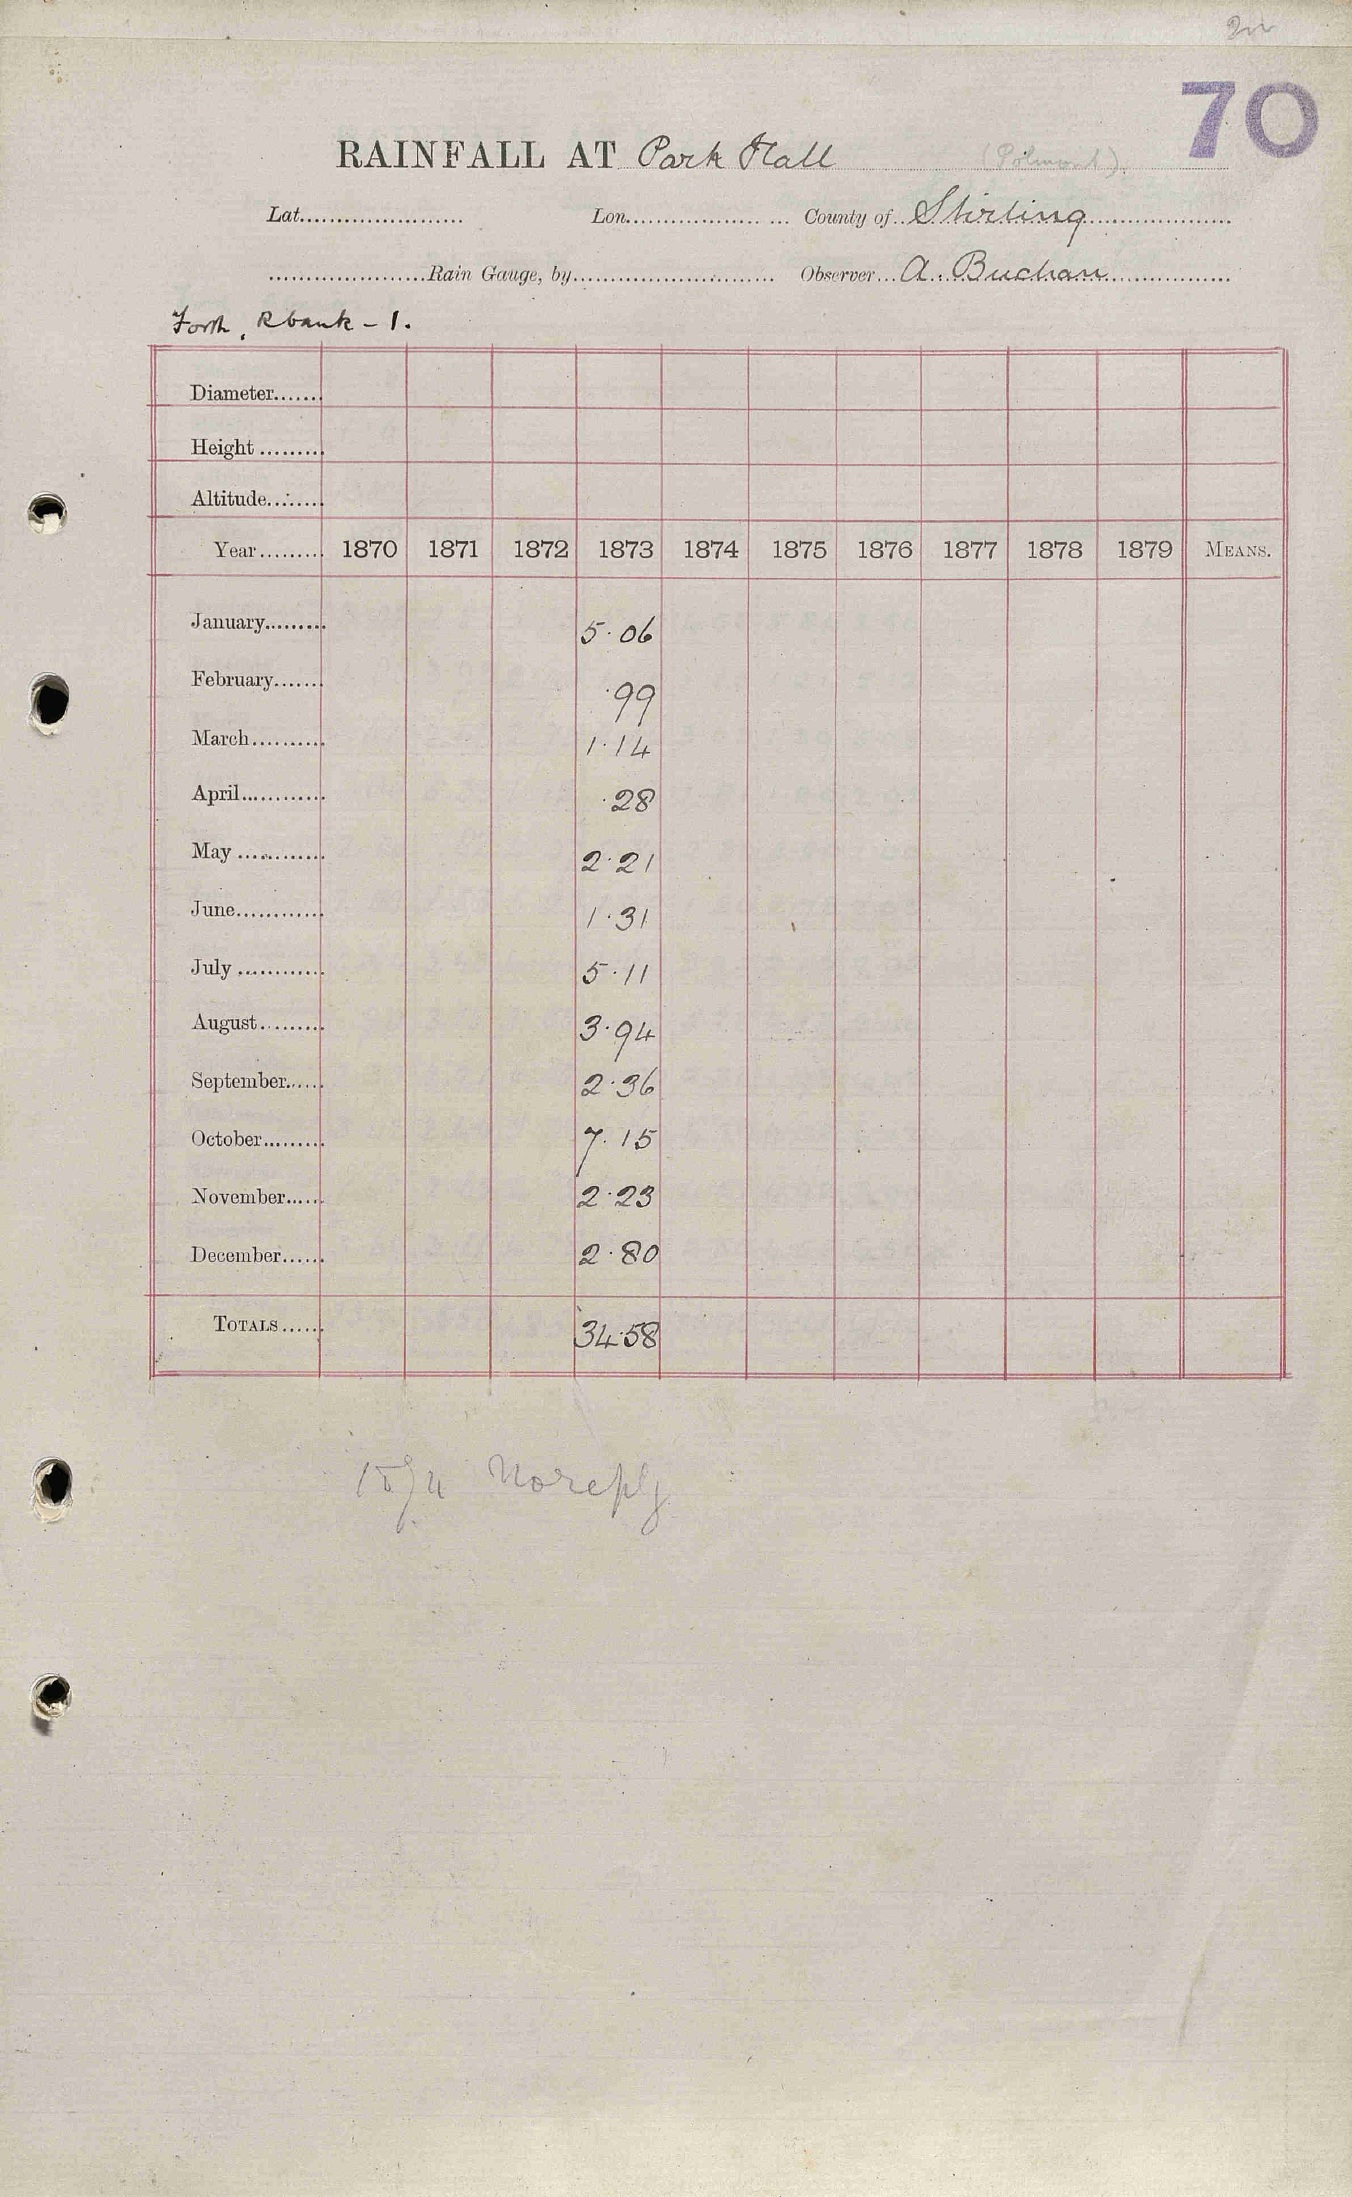 70
RAINFALL AT Park Hall (Polmont).
Lat...................... Lon...................... County of Stirling
.....................Rain Gauge, by........................... Observer A. Buchan
Forth, Rbank - 1.
Diameter.......
Height.........
Altitude........
Year......... 1870 1871 1872 1873 1874 1875 1876 1877 1878 1879 MEANS.
January......... 5.06
February....... .99
March.......... 1.14
April............ .28
May ............ 2.21
June............ 1.31
July ............ 5.11
August......... 3.94
September...... 2.36
October......... 7.15
November...... 2.23
December...... 2.80
TOTALS...... 34.58
No reply